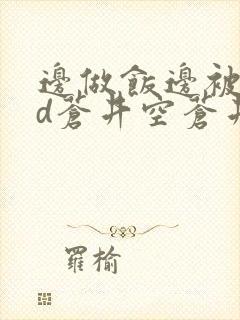 邊做飯邊被
d蒼井空蒼井
羅榆